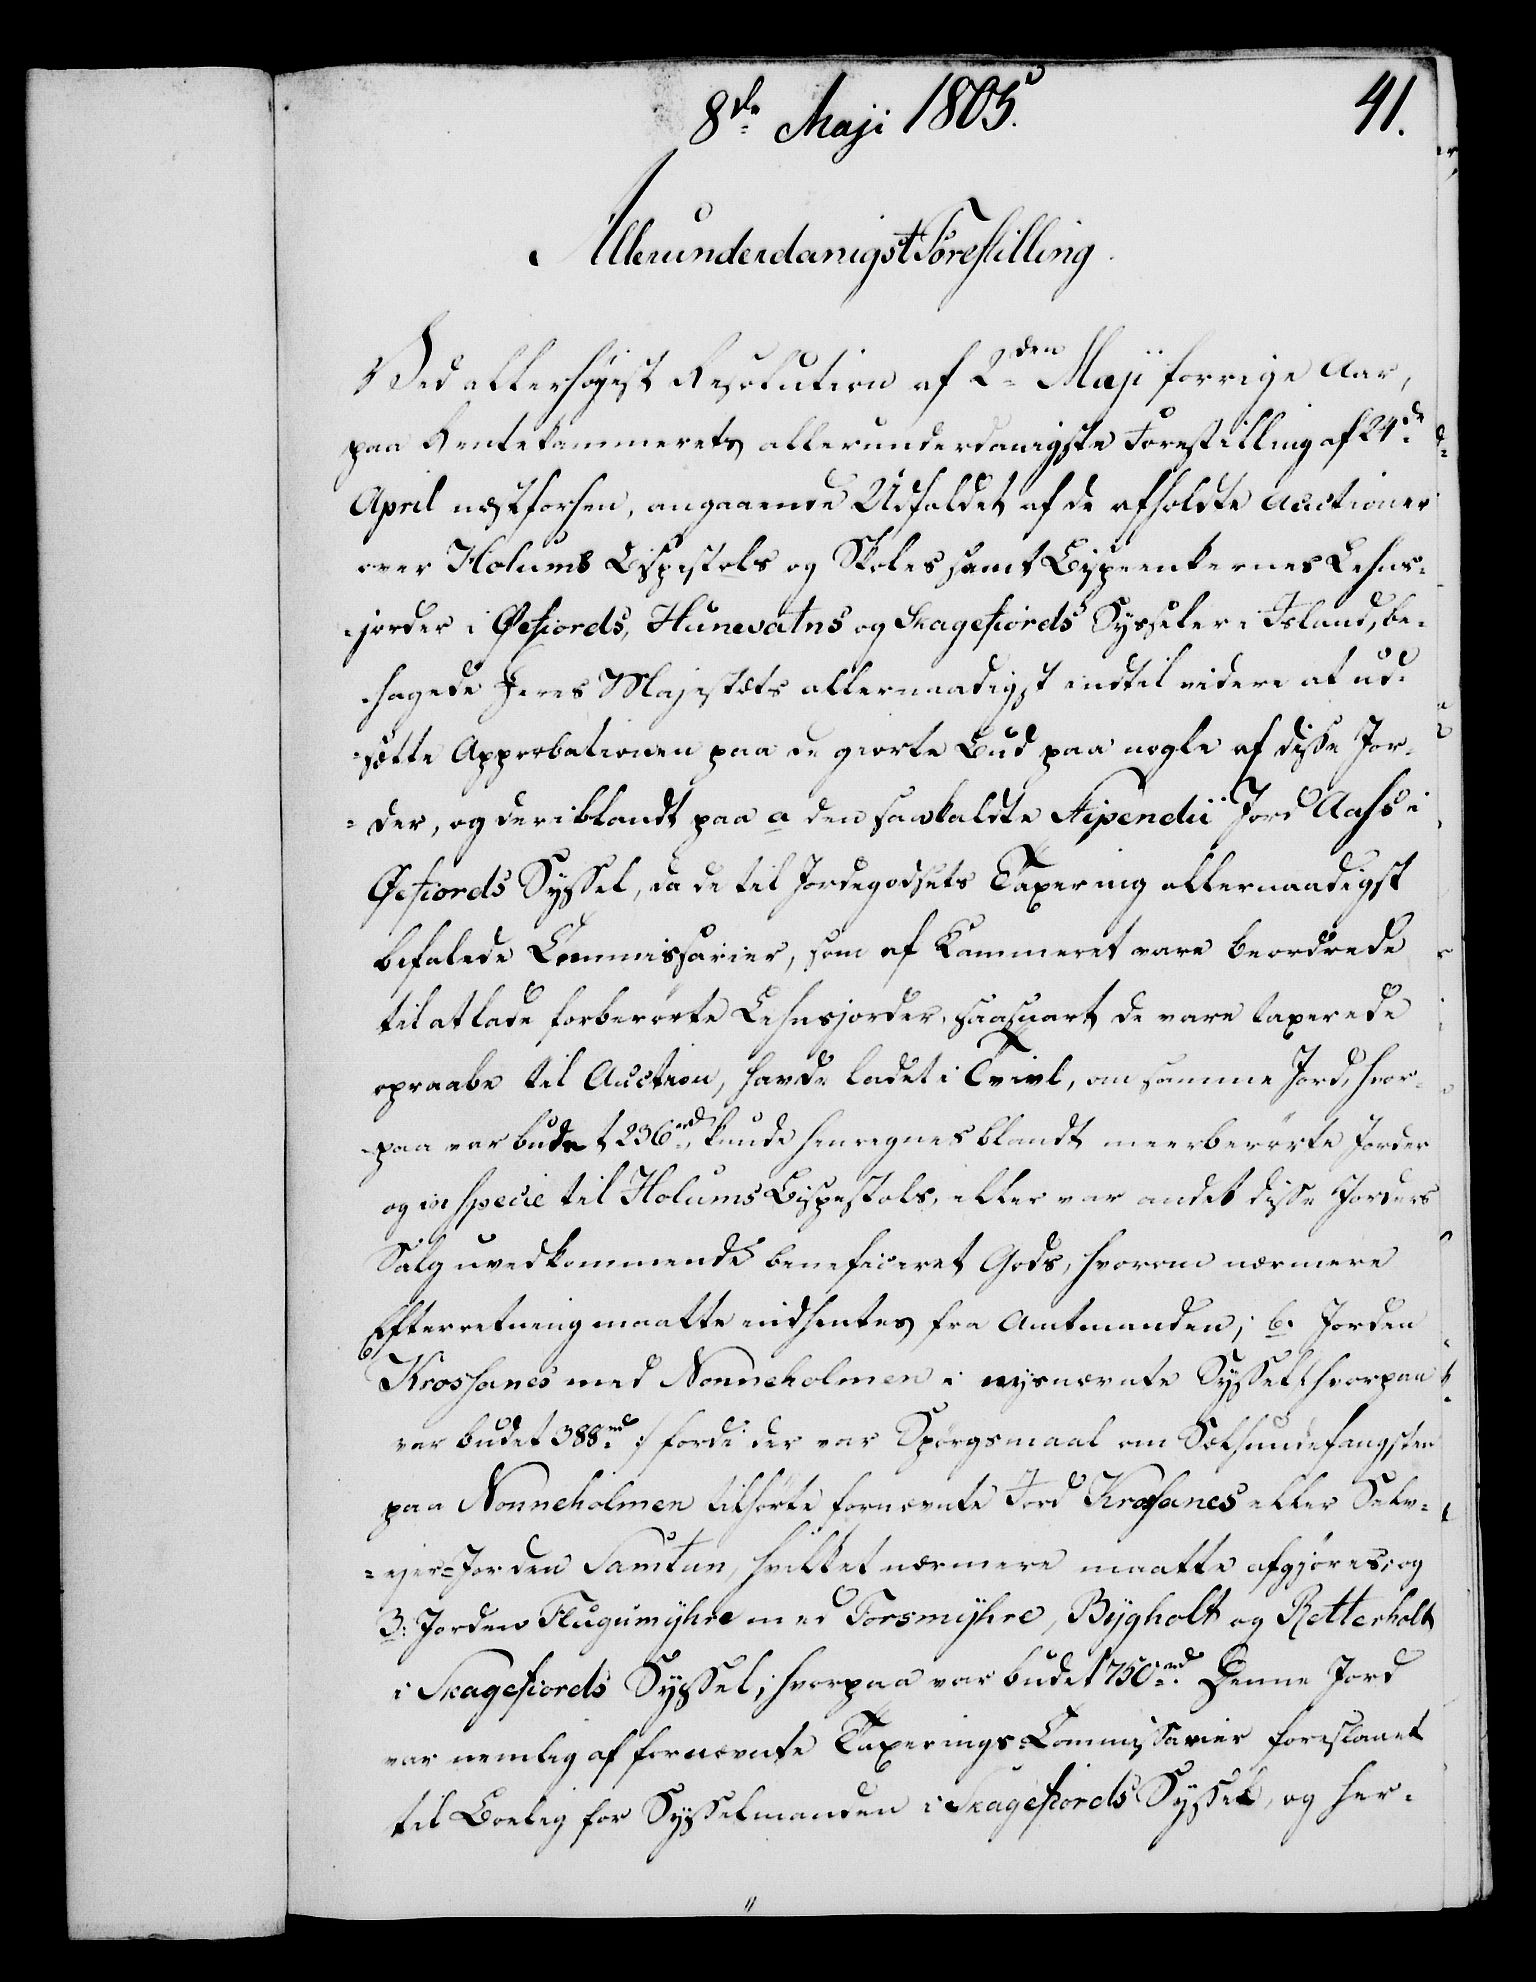 8de Maji 1805.
41.
Allerunderdanigst Forestilling.
Ved allerhøjest Resolution af 2den Maji forrige Aar,
paa Rentekammerets allerunderdanigste Forestilling af 24de
April næstforhen, angaaende Udfaldet af de afholdte Auctioner
over Holums Bispestols og Skoles samt Bispeenkernes Lehns-
jorder i Øefiords, Hunevatns og Skagefiords Sysseler i Island, be-
hagede Deres Majestæts allernaadigst indtil videre at ud-
sætte Approbationen paa de giorte Bud paa nogle af disse Jor-
der, og deriblandt paa a den saakaldte Stipendii Jord Aahs i
Øefiords Syssel, da de til Jordegodsets Taxering allernaadigst
befalede Commissarier, som af Kammeret vare beordrede
til at lade forberørte Lehnsjorder, saasnart de vare taxerede
opraabe til Auction, havde ladet i Tvivl, om samme Jord, hvor-
paa var budet 236rd, kunde henregnes blandt meerberørte Jorder
og in specie til Holums Bispestols, eller var andet disse Jorders
Salg uvedkommende beneficeret Gods, hvorom nærmere
Efterretning maatte indhentes fra Amtmanden; b. Jorden
Krossanes med Nonneholmen i nysnævnte Syssel, hvorpaa
var budet 388rd :/ fordi der var Spørgsmaal om Sælhundefangsten
paa Nonneholmen tilhørte fornævnte Jord Krossanes eller Selv-
ejer-Jorden Samtun, hvilket nærmere maatte afgjøres; og
3: Jorden Flugumyhre med Torsmyhre, Bygholt og Retterholt
i Skagefiords Syssel; hvorpaa var budet 750rd. Denne Jord
var nemlig af fornævnte Taxerings-Commissarier foreslaaet
til Boelig for Sysselmanden i Skagefiords Syssel, og her-